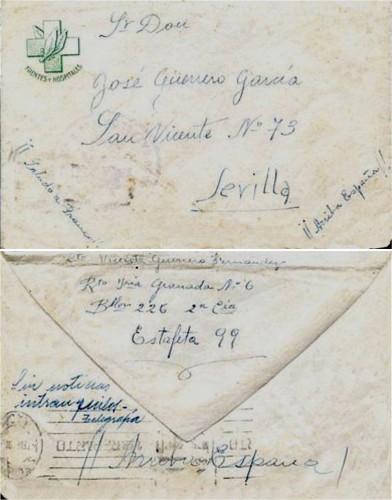 FRENTES Y HOSPITALES
Sr Don
José Guerrero García
San Vicente Nº 73
Sevilla
¡¡Saludo a Franco!!
¡¡Arriba España!!
Rte Vicente Guerrero Fernandez
Rto Infª Granada Nº 6
Bllon 226 2ª Cía
Estafeta 99
Sin noticias
intranquilos
telegrafia
¡¡Arriba España!